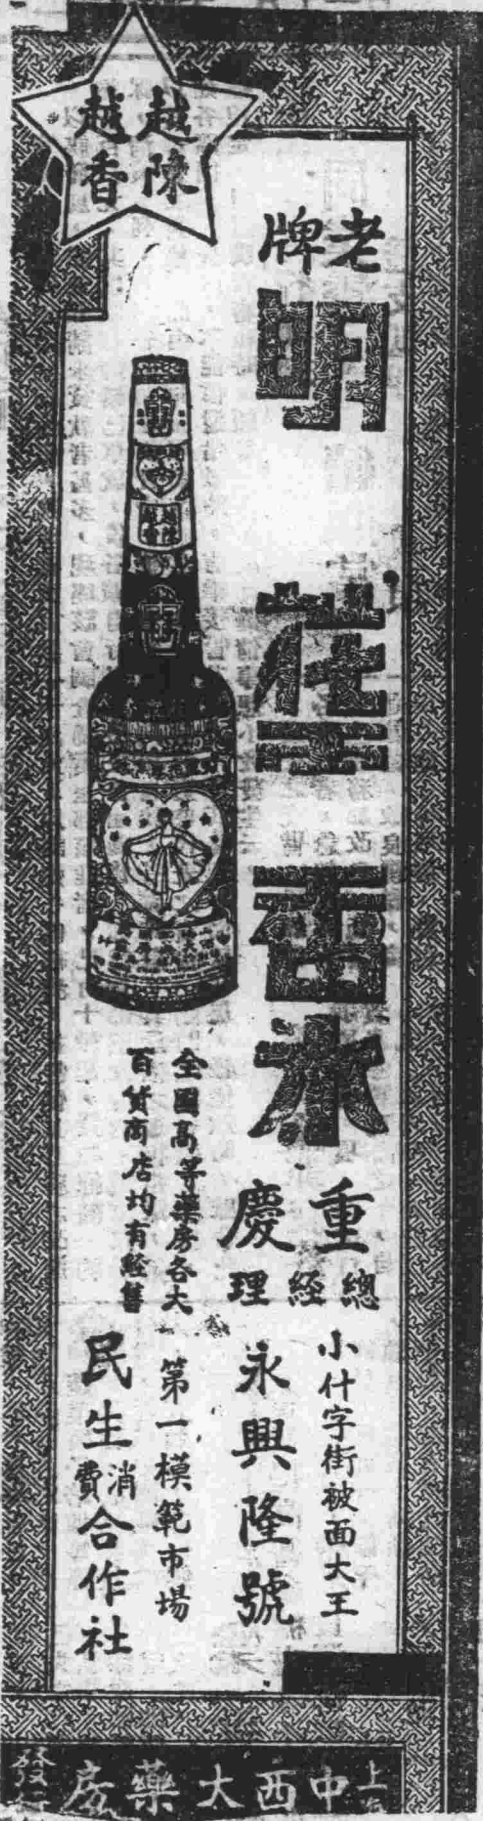 越陳
越香
老牌
明
花
香水
重慶
總經理
小什字街被面大王
永興隆號
全國高等藥房各大
百貨商店均有經售
第一模範市場
民生消費合作社
上海中西大藥房發行